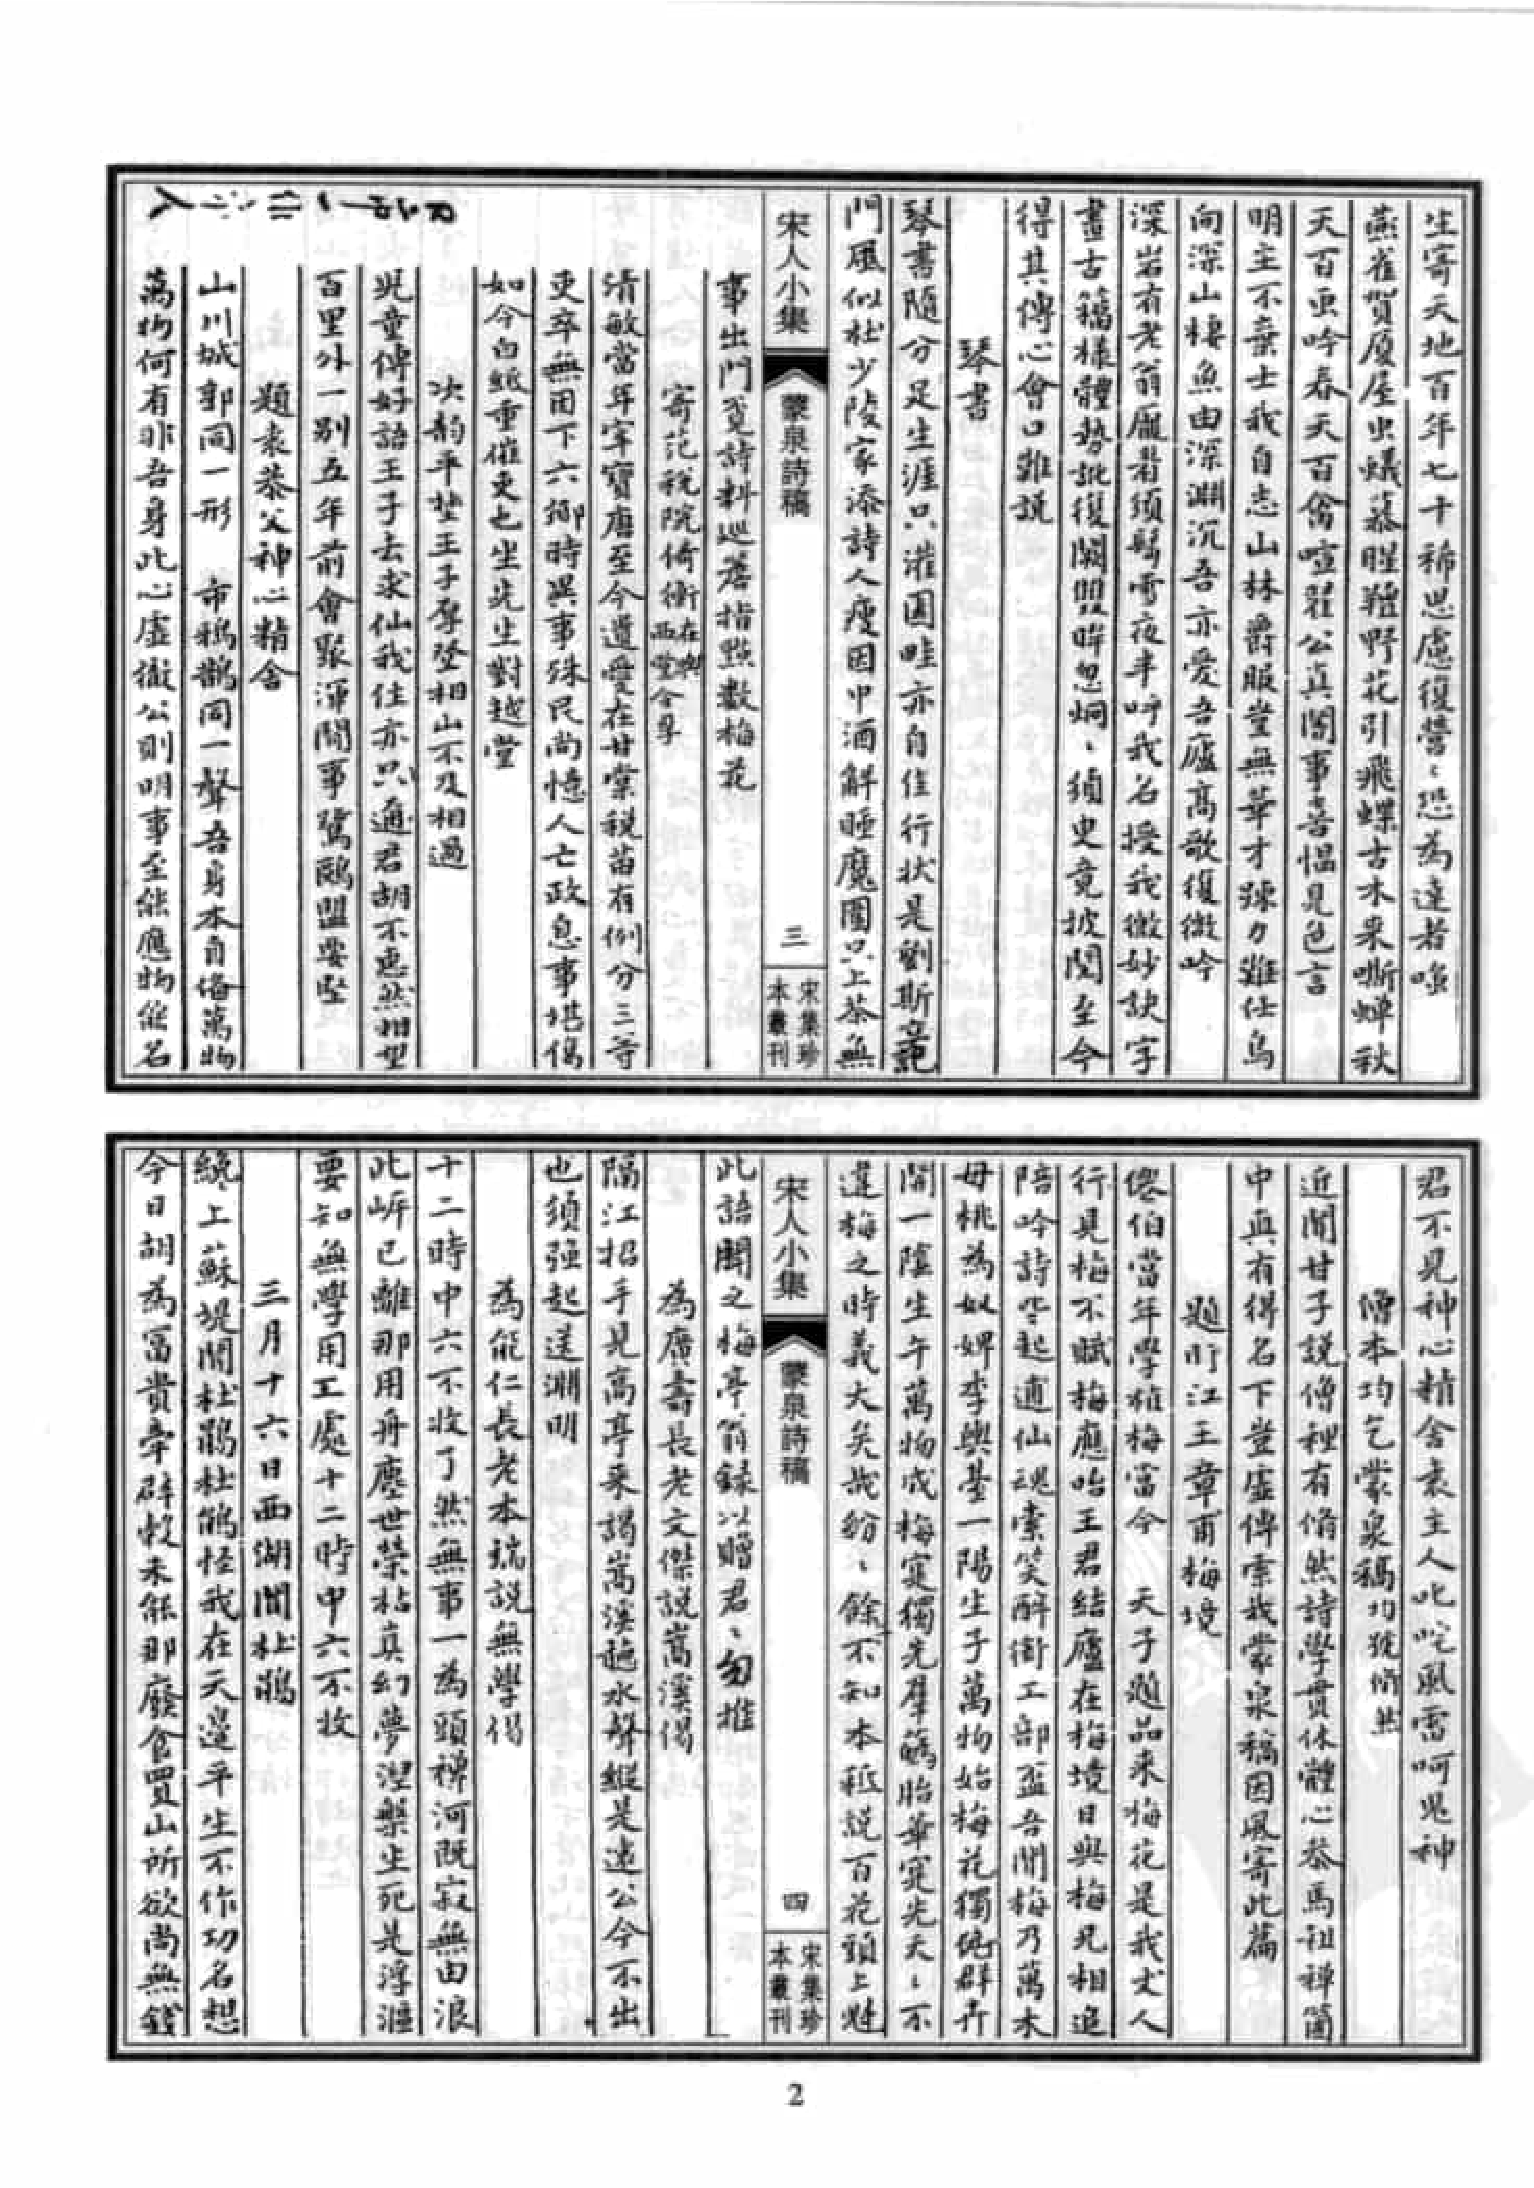 生寄天地百年七十稀思慮復營、恐為達者嗤
燕雀賀厦屋虫蟻慕腥羶野花引飛蝶古木來嘶蟬秋
天百虫吟春天百禽喧瞿公真閱事喜慍見色言
明主不棄士我自志山林爵服豈無華才踈力難仕鳥
向深山棲魚由深淵沉吾亦愛吾廬高歌復微吟
深岩有老翁龎眉須髩雪夜半呼我名授我微妙訣字
畫古籀樣體勢訛復闕盥眸忽炯、須臾竟披閱至今
得其傳心會口難説
琴書
琴書随分足生涯只灌園畦亦自佳行状是劉斯立範
門風似杜少陵家添詩人瘦因中酒解睡魔圍只上茶無
宋人小集
蒙泉詩稿
三
宋集珍
本叢刊
事出門覓詩料巡簷指㸃數梅花
寄范税院倚衡在輿西堂合享
清敏當年宰寶唐至今遺愛在甘棠税苗有例分三等
吏卒無因下六鄉時異事殊民尚憶人亡政息事堪傷
如今白紙重催吏乞坐先生對越堂
次韵平埜王子厚登相山不及相過
児童傳好語王子去求仙我住亦只邇君胡不恵然相望
百里外一别五年前會聚渾閒事鷺鷗盟要堅
題袁恭父神心精舍
山川城郭同一形 市鴉鵲同一聲吾身本自偹萬物
萬物何有非吾身此心虛徹公則明事至能應物能名
君不見神心精舍袁主人叱咤風雷呵鬼神
僧本均乞蒙泉稿均號脩然
近聞甘子説僧裡有脩然詩學貫休體心恭馬祖禅箇
中真有得名下豈虛傳索我蒙泉稿因風寄此篇
題盱江王章甫梅境
僊伯當年學植梅當今 天子題品来梅花是我丈人
行見梅不賦梅應咍王君結廬在梅境日與梅兄相追
陪吟詩喚起逋仙魂索笑醉銜工部盃吾聞梅乃萬木
母桃為奴婢李輿䑓一陽生子萬物始梅花獨伲群卉
開一陰生午萬物成梅寔獨先羣蕊胎華寔先天、不
違梅之時義大矣哉紛、餘不知本秪説百花頭上魁
宋人小集
蒙泉詩稿
四
宋集珍
本叢刊
此語聞之梅亭翁録以贈君、勿推
為廣壽長老文傑説嵩溪偈
隔江招手見高亭来謁嵩溪聽水聲縱是遠公今不出
也須强起送淵明
為能仁長老本瑞説無學偈
十二時中六不收了然無事一為頭禅河既寂無由浪
此岼已離那用舟塵世榮枯真幻夢涅槃生死是浮漚
要知無學用工處十二時中六不收
三月十六日西湖聞杜鵑
纔上蘇堤聞杜鵑杜鵑怪我在天邊平生不作功名想
今日胡為富貴牽辟穀未能那廢食買山所欲尚無錢